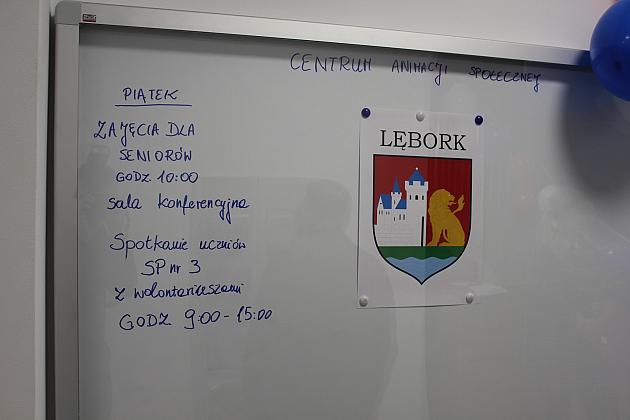 CENTRUM ANIMACJI SPOŁECZNEJ
PIĄTEK
ZAJĘCIA DLA
SENIORÓW
GODZ. 10:00
sala konferencyjna
Spotkanie uczniów
SP nr 3
z wolontariuszami
GODZ 9:00 - 15:00
LĘBORK